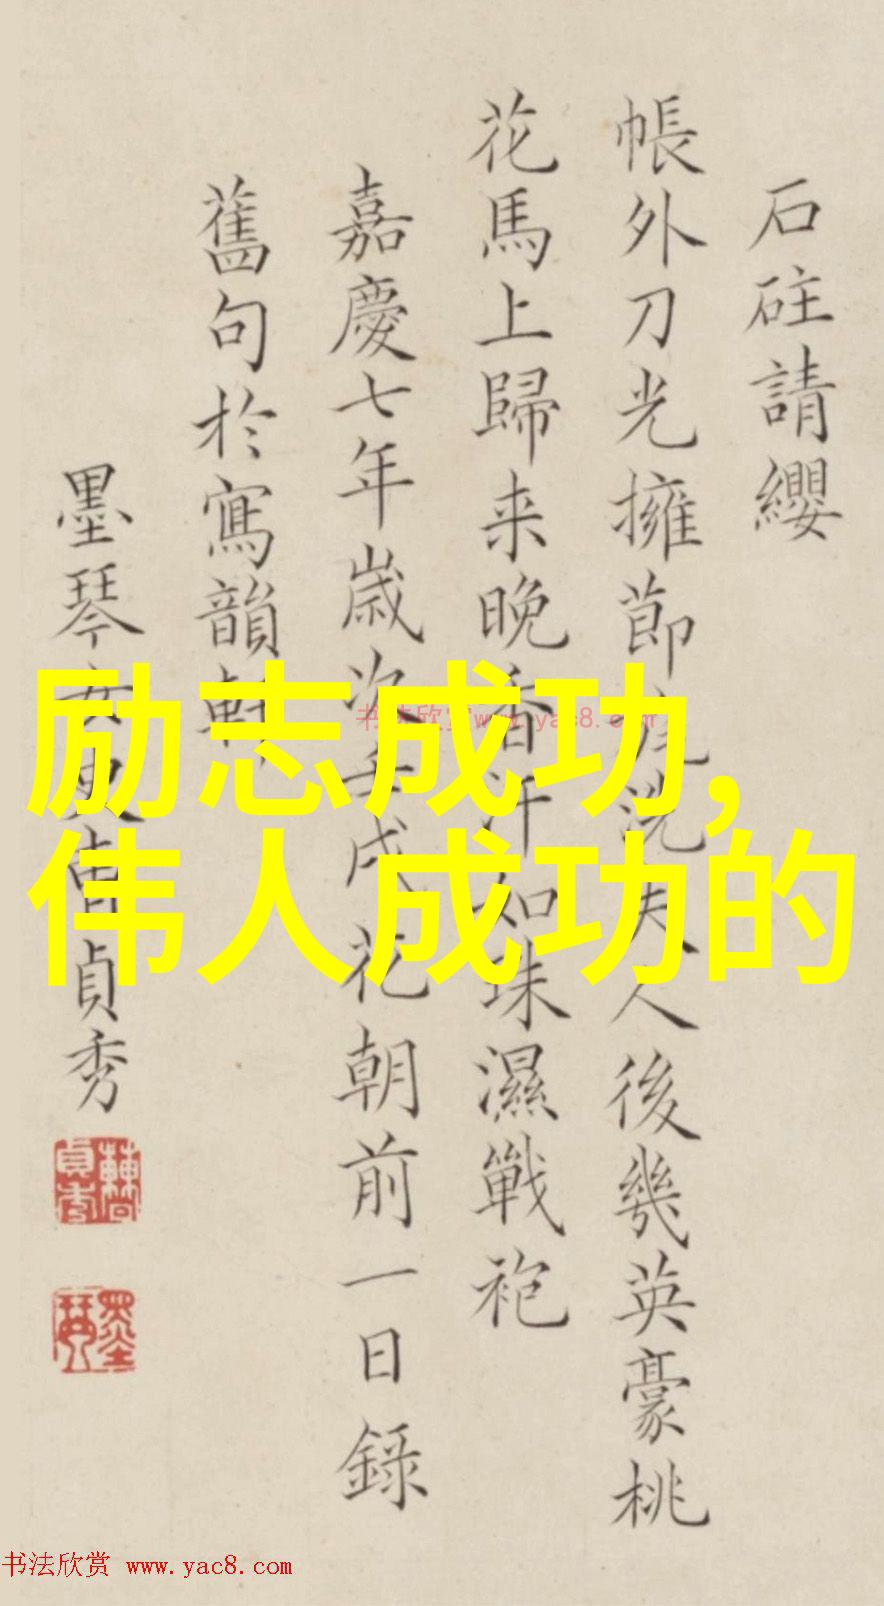 石砫請纓
帳外刀光擁節旄洗夫人後幾英豪桃
花馬上歸来晚香汗如珠濕戰袍
嘉慶七年歲次壬戌花朝前一日錄
舊句於寫韻軒
墨琴女史曹貞秀
励志成功,
伟人成功的
书法欣赏 www.yac8.com
书法欣赏 www.yac8.com